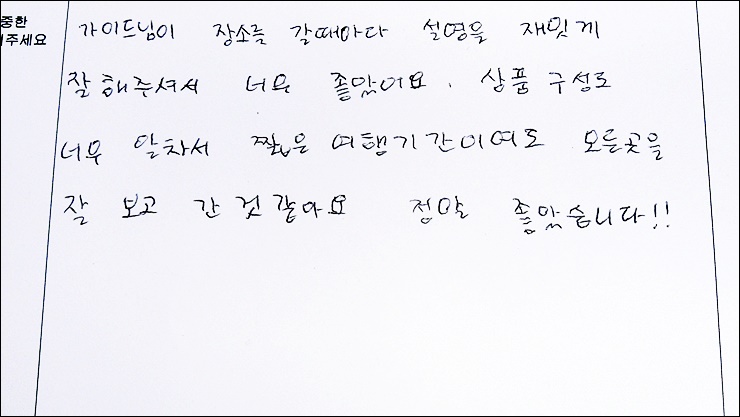 중한
주세요
가이드님이 장소를 갈때마다 설명을 재밋게
잘 해주셔서 너무 좋았어요. 상품 구성도
너무 알차서 짧은 여행기간이여도 모든곳을
잘 보고 간 것 같아요 정말 좋았습니다!!